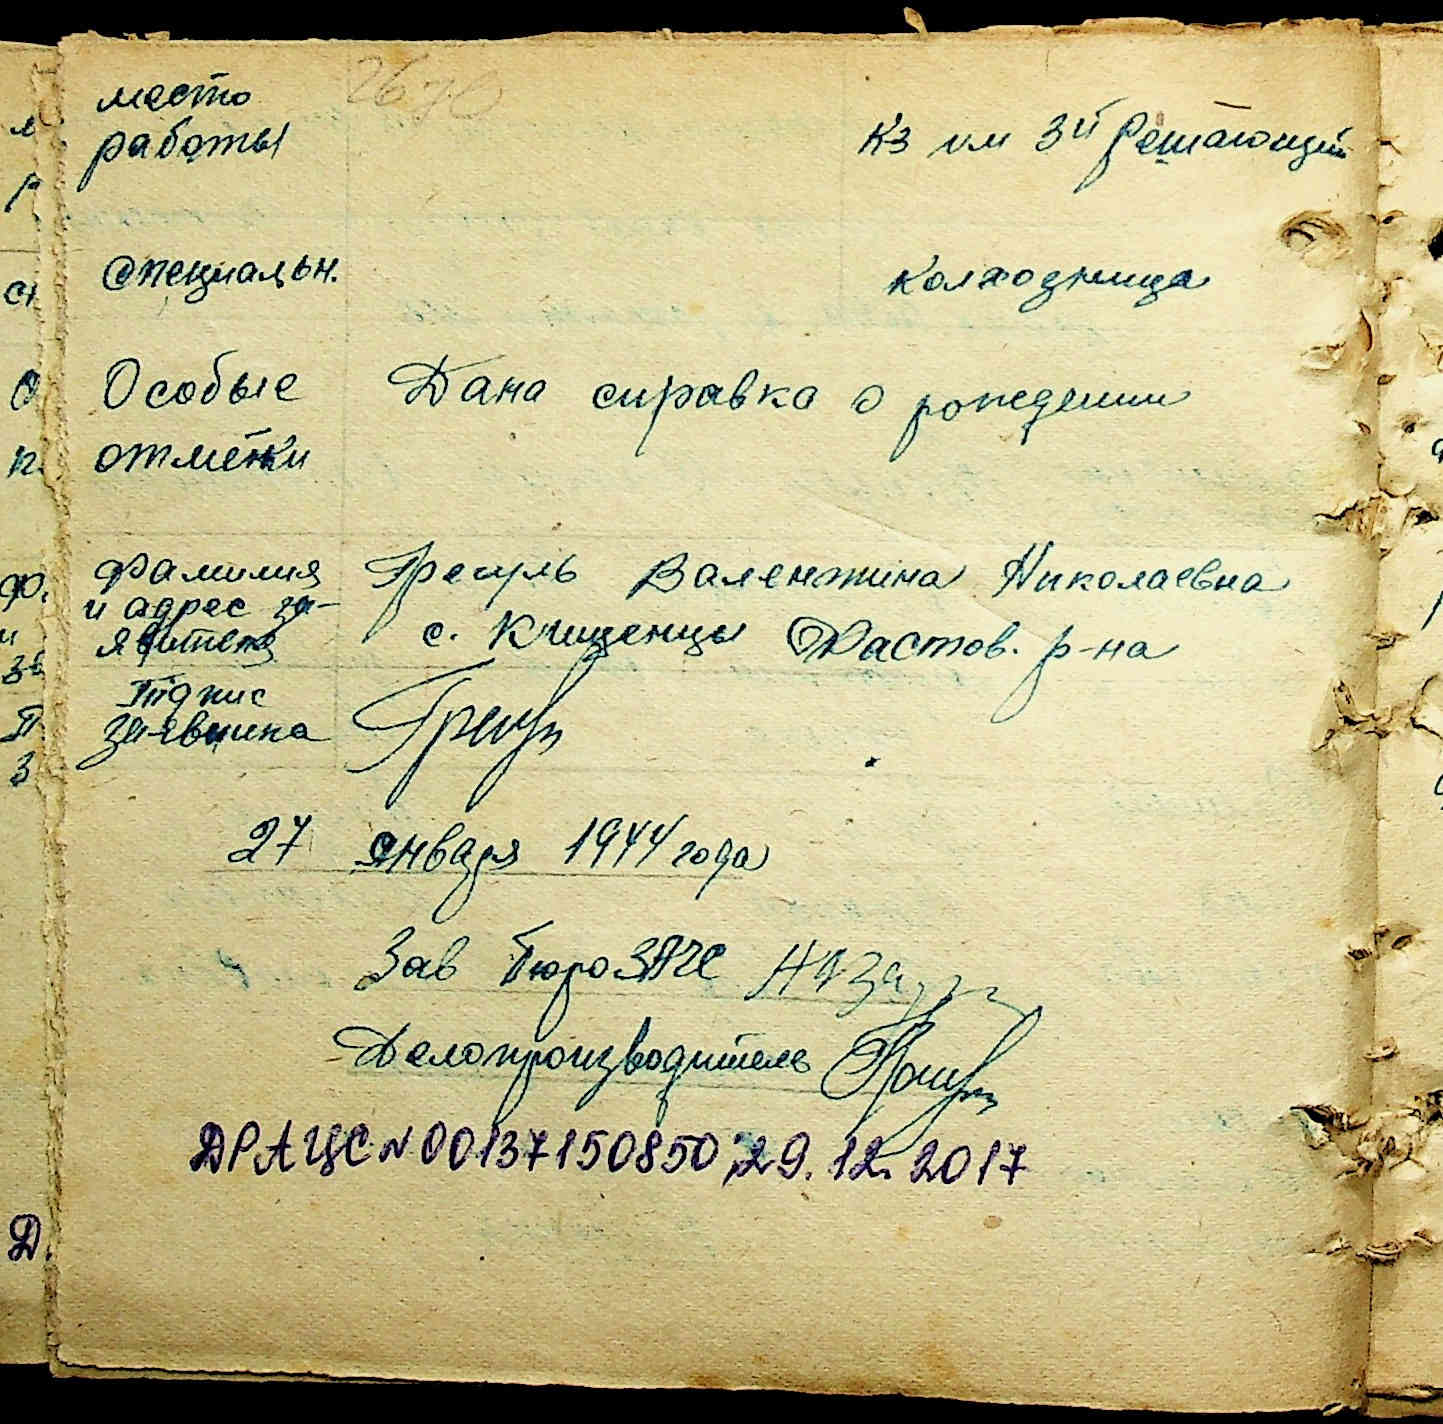 2670
место
работы
кз им 3й Решающий
специальн.
колхозница
Особые
отметки
Дана справка о рождении
Фамилия
и адрес за-
явителя
Валентина Николаевна
с. Кищенцы Фастов. р-на
Підпис
заявника
27 января 1944 года
Зав Бюро ЗАГС
Делопроизводитель
ДРАЦС N 00137150850 29.12.2017